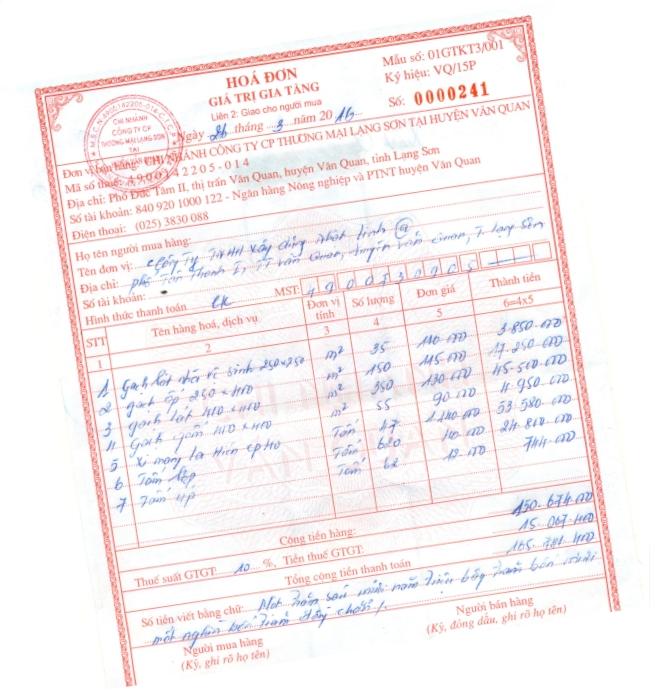 HOÁ ĐƠN
GIÁ TRỊ GIA TĂNG
Liên 2: Giao cho người mua
Mẫu số: 01GTKT3/001
Ký hiệu: VQ/15P
Số: 0000241
Ngày 26 tháng 3 năm 20
CHI NHÁNH
CÔNG TY CP
THƯƠNG MẠI LẠNG SƠN
TẠI
Đơn vị bán hàng: CHI NHÁNH CÔNG TY CP THƯƠNG MẠI LẠNG SƠN TẠI HUYỆN VĂN QUAN
Mã số thuế: 4900142205-014
Địa chỉ: Phố Đức Tâm II, thị trấn Văn Quan, huyện Văn Quan, tỉnh Lạng Sơn
Số tài khoản: 840 920 1000 122 - Ngân hàng Nông nghiệp và PTNT huyện Văn Quan
Điện thoại: (025) 3830 088
Họ tên người mua hàng:
Tên đơn vị: Công ty TNHH Xây dựng Nhật Linh @
Địa chỉ: phố Tân Thanh I, TT Văn Quan, huyện Văn Quan, T. Lạng Sơn
Số tài khoản:
Hình thức thanh toán CK MST: 4900530905
STT Tên hàng hoá, dịch vụ Đơn vị tính Số lượng Đơn giá Thành tiền
1 2 3 4 5 6=4x5
1 Gạch lát nhà vệ sinh 250x250 m² 35 110.000 3.850.000
2 gạch ốp 250 x 400 m² 150 115.000 17.250.000
3 gạch lát 400 x 400 m² 350 130.000 45.500.000
4 Gạch gốm 400 x 400 m² 55 90.000 4.950.000
5 Xi măng La Hiên CP40 Tấn 47 1.140.000 53.580.000
6 Tấm lợp Tấm 620 40.000 24.800.000
7 Tấm úp Tấm 62 12.000 744.000
Cộng tiền hàng: 150.674.000
Thuế suất GTGT: 10 %, Tiền thuế GTGT: 15.067.400
Tổng cộng tiền thanh toán 165.741.400
Số tiền viết bằng chữ: Một trăm sáu mươi năm triệu bảy trăm bốn mươi
một nghìn bốn trăm đồng chẵn /
Người mua hàng
(Ký, ghi rõ họ tên)
Người bán hàng
(Ký, đóng dấu, ghi rõ họ tên)